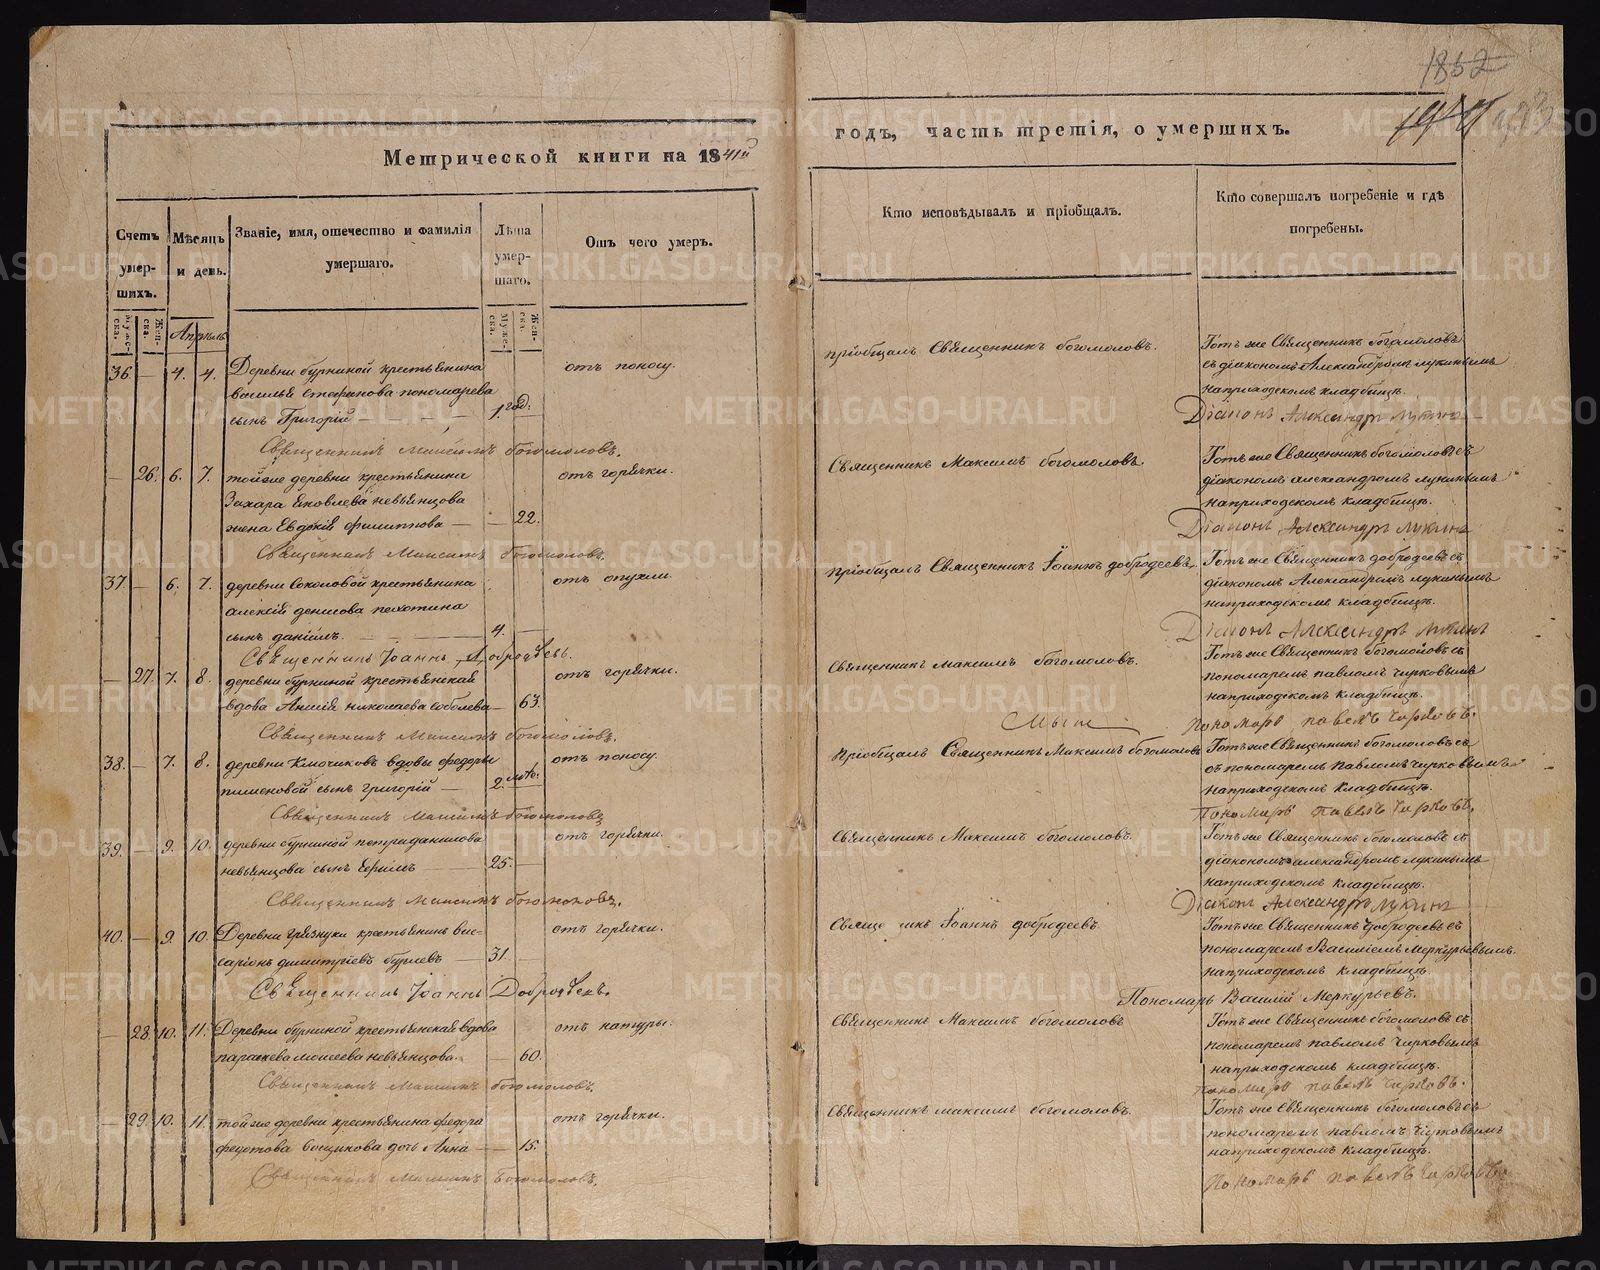 Метрической книги на 1841й
годъ, часть третія, о умершихъ.
1852
Счетъ умер-
шихъ.
Мѣсяцъ
и день.
Званіе, имя, отечество и фамилія
умершаго.
Лѣта
умер-
шаго.
Отъ чего умеръ.
Кто исповѣдывалъ и пріобщалъ.
Кто совершалъ погребеніе и гдѣ
погребены.
Муже-
ска.
Жен-
ска.
Муже-
ска.
Жен-
ска.
Апрѣль
36 — 4. 4. Деревни бурниной крестьянина
василья стефанова пономарева
сынъ Григорій — 1. год:
отъ поносу.
пріобщалъ Священникъ богомоловъ.
Тотъ же Священникъ богомоловъ
съ діакономъ Александромъ лукинымъ
наприходскомъ кладбищѣ.
Діаконъ Александръ Лукинъ
Священникъ Максимъ богомоловъ.
— 26. 6. 7. тойже деревни крестьянина
Захара Яковлева невьянцова
жена Евдокія филиппова — 22.
отъ горячки.
Священникъ Максимъ богомоловъ
Тотъ же Священникъ богомоловъ съ
діакономъ александромъ лукинымъ
наприходскомъ кладбищѣ.
Діаконъ Александръ Лукинъ
Священникъ Максимъ богомоловъ.
37 — 6. 7. деревни Соколовой крестьянина
алексѣй денисова пехотина
сынъ даніилъ. — 4.
отъ опухли.
пріобщалъ Священникъ Іоаннъ добродеевъ.
Тотъ же Священникъ добродеевъ съ
діакономъ Александромъ лукинымъ
наприходскомъ кладбищѣ.
Діаконъ Александръ Лукинъ
Священникъ Іоаннъ Добродѣевъ.
— 27. 7. 8. деревни бурниной крестьянская
вдова Анисія николаева соболева — 63.
отъ горячки.
Священникъ Максимъ богомоловъ.
Тотъ же Священникъ богомоловъ съ
пономаремъ павломъ чирковымъ
наприходскомъ кладбищѣ.
пономарь павелъ Чирковъ.
Священникъ Максимъ богомоловъ.
38. — 7. 8. деревни Ключикова вдовы федоры
пименовой сынъ григорій — 2.
отъ поносу.
пріобщалъ Священникъ Максимъ богомоловъ
Тотъ же Священникъ богомоловъ съ
съ пономаремъ павломъ чирковымъ
наприходскомъ кладбищѣ.
Пономарь павелъ Чирковъ.
Священникъ Максимъ богомоловъ
39. — 9. 10. деревни бурниной петра данилова
невьянцова сынъ Ефимъ — 25. —
отъ горячки.
Священникъ Максимъ богомоловъ.
Тотъ же Священникъ богомоловъ съ
діакономъ александромъ лукинымъ
наприходскомъ кладбищѣ.
Діаконъ Александръ Лукинъ
Священникъ Максимъ богомоловъ.
40. — 9. 10. Деревни грязнухи крестьянинъ вис-
саріонъ димитріевъ бурлевъ — 31. —
отъ горячки.
Іоаннъ добродеевъ
Тотъ же Священникъ Добродеевъ съ
пономаремъ Василіемъ Меркурьевымъ.
наприходскомъ кладбищѣ.
Пономарь Василій Меркурьевъ.
Священникъ Іоаннъ Добродѣевъ.
— 28. 10. 11. Деревни бурниной крестьянская вдова
параскева моисеева невьянцова. — 60.
отъ натуры.
Священникъ Максимъ богомоловъ
Тотъ же Священникъ богомоловъ съ
пономаремъ павломъ Чирковымъ
наприходскомъ кладбищѣ.
пономарь павелъ Чирковъ.
Священникъ Максимъ богомоловъ.
— 29. 10. 11. тойже деревни крестьянина федора
федотова дочь Анна — 15.
отъ горячки.
Священникъ максимъ богомоловъ.
Тотъ же Священникъ богомоловъ съ
пономаремъ павломъ Чирковымъ
наприходскомъ кладбищѣ.
Пономарь павелъ Чирковъ
Священникъ Максимъ Богомоловъ.
METRIKI.GASO-URAL.RU